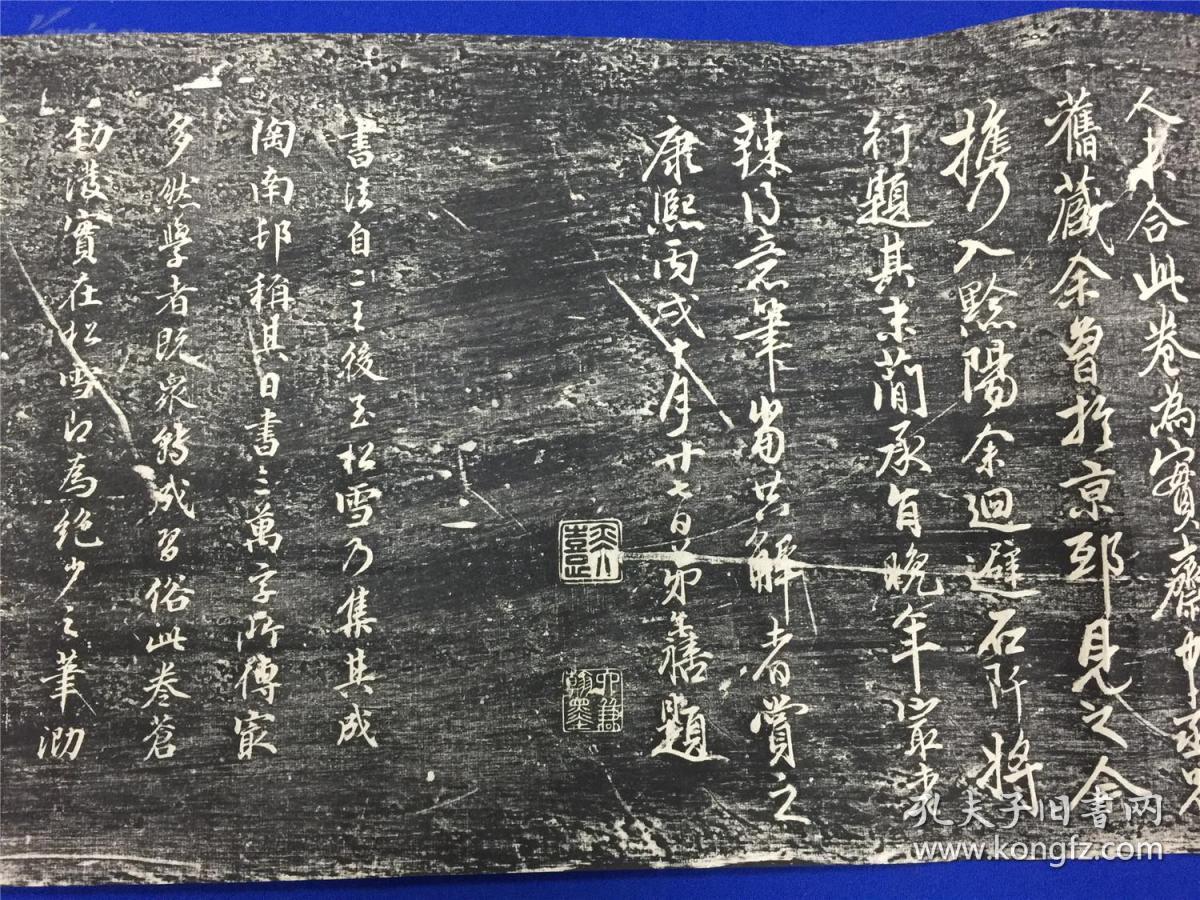 人未合此卷為實齋
舊藏余曾於京邸見之今
携入黔陽余迴避石阡將
行題其末蕳承旨晚年最
辣得意筆當共解者賞之
康熙丙戌十月廿七日弟善題
書法自二王後至松雪乃集其成
陶南邨稱其日書三萬字所傳最
多然學者既衆轉成習俗此卷蒼
勁渡實在松雪已為絶少之筆泐
孔夫子旧书网
www.kongfz.com